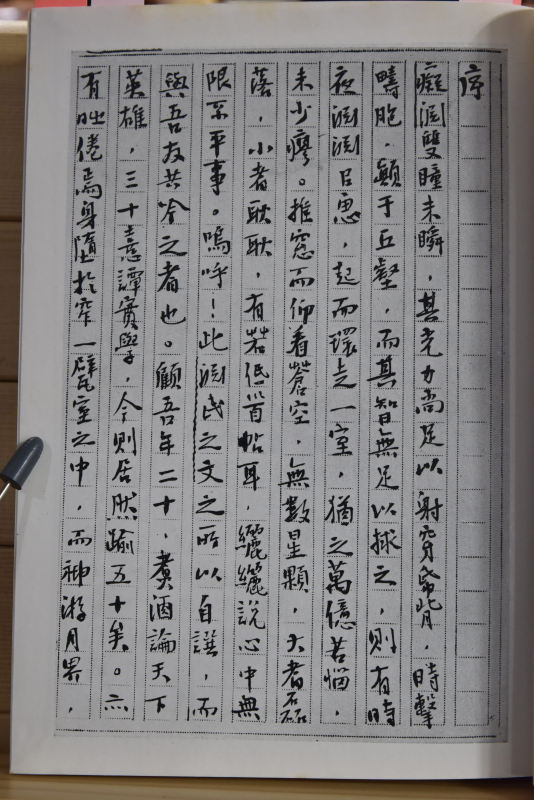 序
癡淵雙瞳未瞬，其光力尚足以射穿歸背，時擊
疇胞，顛于丘壑，而其智無足以拯之，則有時
夜淵淵臣思，起而環走一室，猶之萬億苦惱，
未少瘳。推窓而仰看蒼空，無數星顆，大者磊
落，小者耿耿，有若低首帖耳，纚纚說心中無
限不平事。嗚呼！此淵民之文之所以自譔，而
與吾友共吟之者也。顧吾年二十，煮酒論天下
英雄，三十憙譚實學，今則居然踰五十矣。亦
有時倦焉身墮於窄一甓室之中，而神游月界，